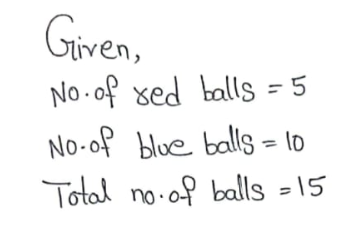 Given,
No. of red balls = 5
No. of blue balls = 10
Total no. of balls = 15